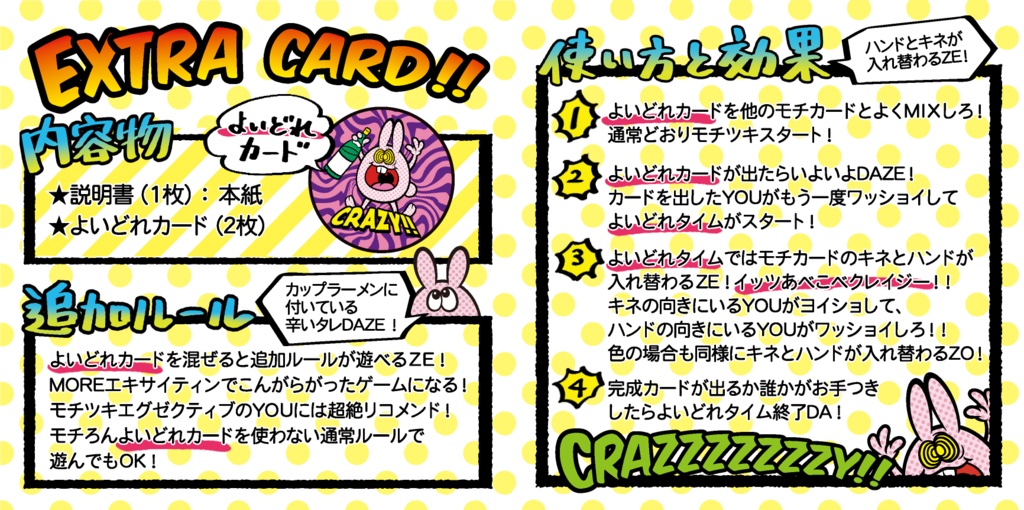 EXTRA CARD!!
内容物
よいどれ
カード
★説明書(1枚):本紙
★よいどれカード(2枚)
CRAZY!!
追加ルール
カップラーメンに
付いている
辛いタレDAZE!
よいどれカードを混ぜると追加ルールが遊べるZE!
MOREエキサイティンでこんがらがったゲームになる!
モチツキエグゼクティブのYOUには超絶リコメンド!
モチろんよいどれカードを使わない通常ルールで
遊んでもOK!
使い方と効果
ハンドとキネが
入れ替わるZE!
1 よいどれカードを他のモチカードとよくMIXしろ!
通常どおりモチツキスタート!
2 よいどれカードが出たらいよいよDAZE!
カードを出したYOUがもう一度ワッショイして
よいどれタイムがスタート!
3 よいどれタイムではモチカードのキネとハンドが
入れ替わるZE!イッツあべこべクレイジー!!
キネの向きにいるYOUがヨイショして、
ハンドの向きにいるYOUがワッショイしろ!!
色の場合も同様にキネとハンドが入れ替わるZO!
4 完成カードが出るか誰かがお手つき
したらよいどれタイム終了DA!
CRAZZZZZZZZY!!